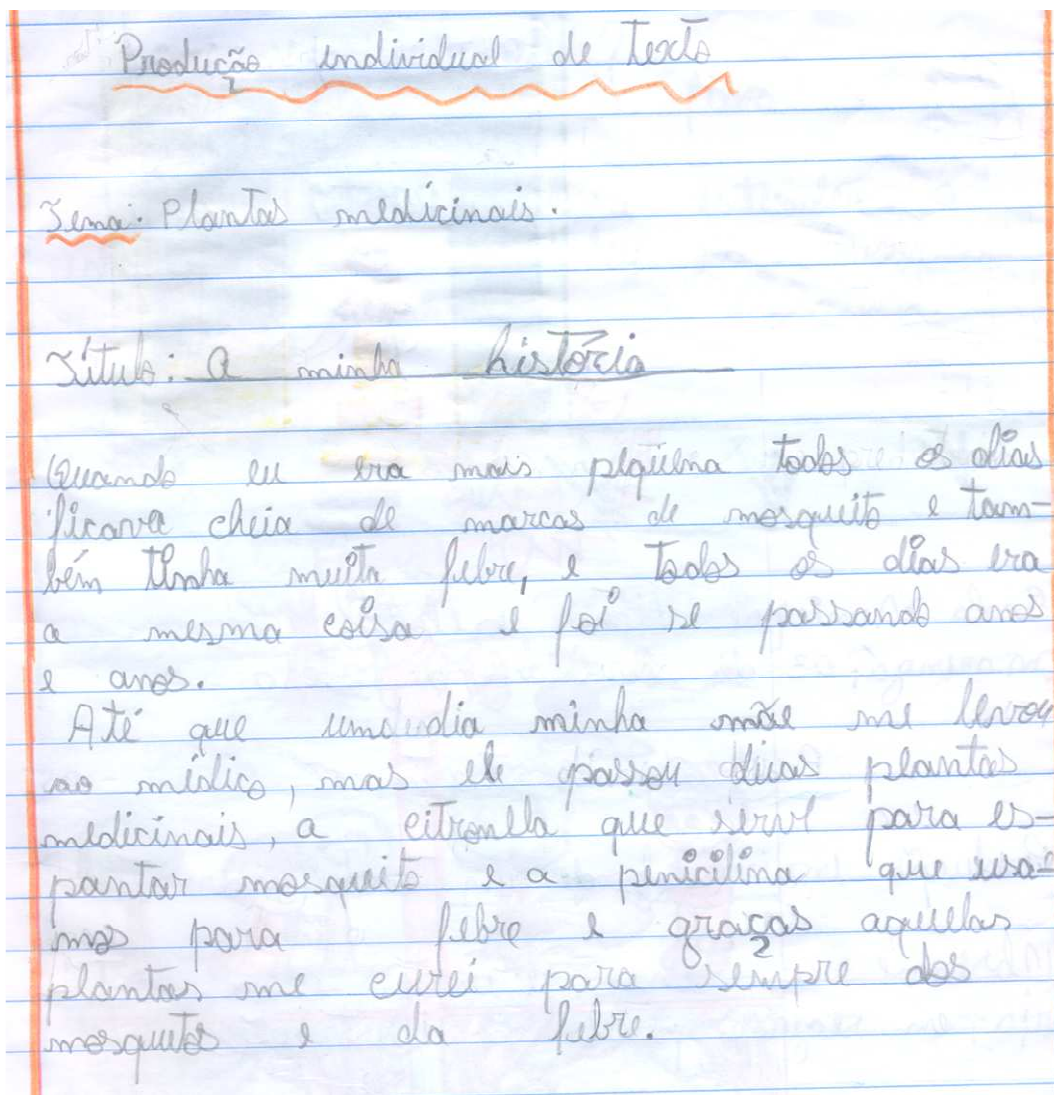 Produção individual de texto
Tema: Plantas medicinais.
Título: A minha história
Quando eu era mais pequena todos os dias
ficava cheia de marcas de mosquito e tam-
bém tinha muita febre, e todos os dias era
a mesma coisa e foi se passando anos
e anos.
Até que um dia minha mãe me levou
ao médico, mas ele passou duas plantas
medicinais, a citronella que serve para es-
pantar mosquito e a penicilina que usa-
mos para febre e graças aquelas
plantas me curei para sempre dos
mosquitos e da febre.